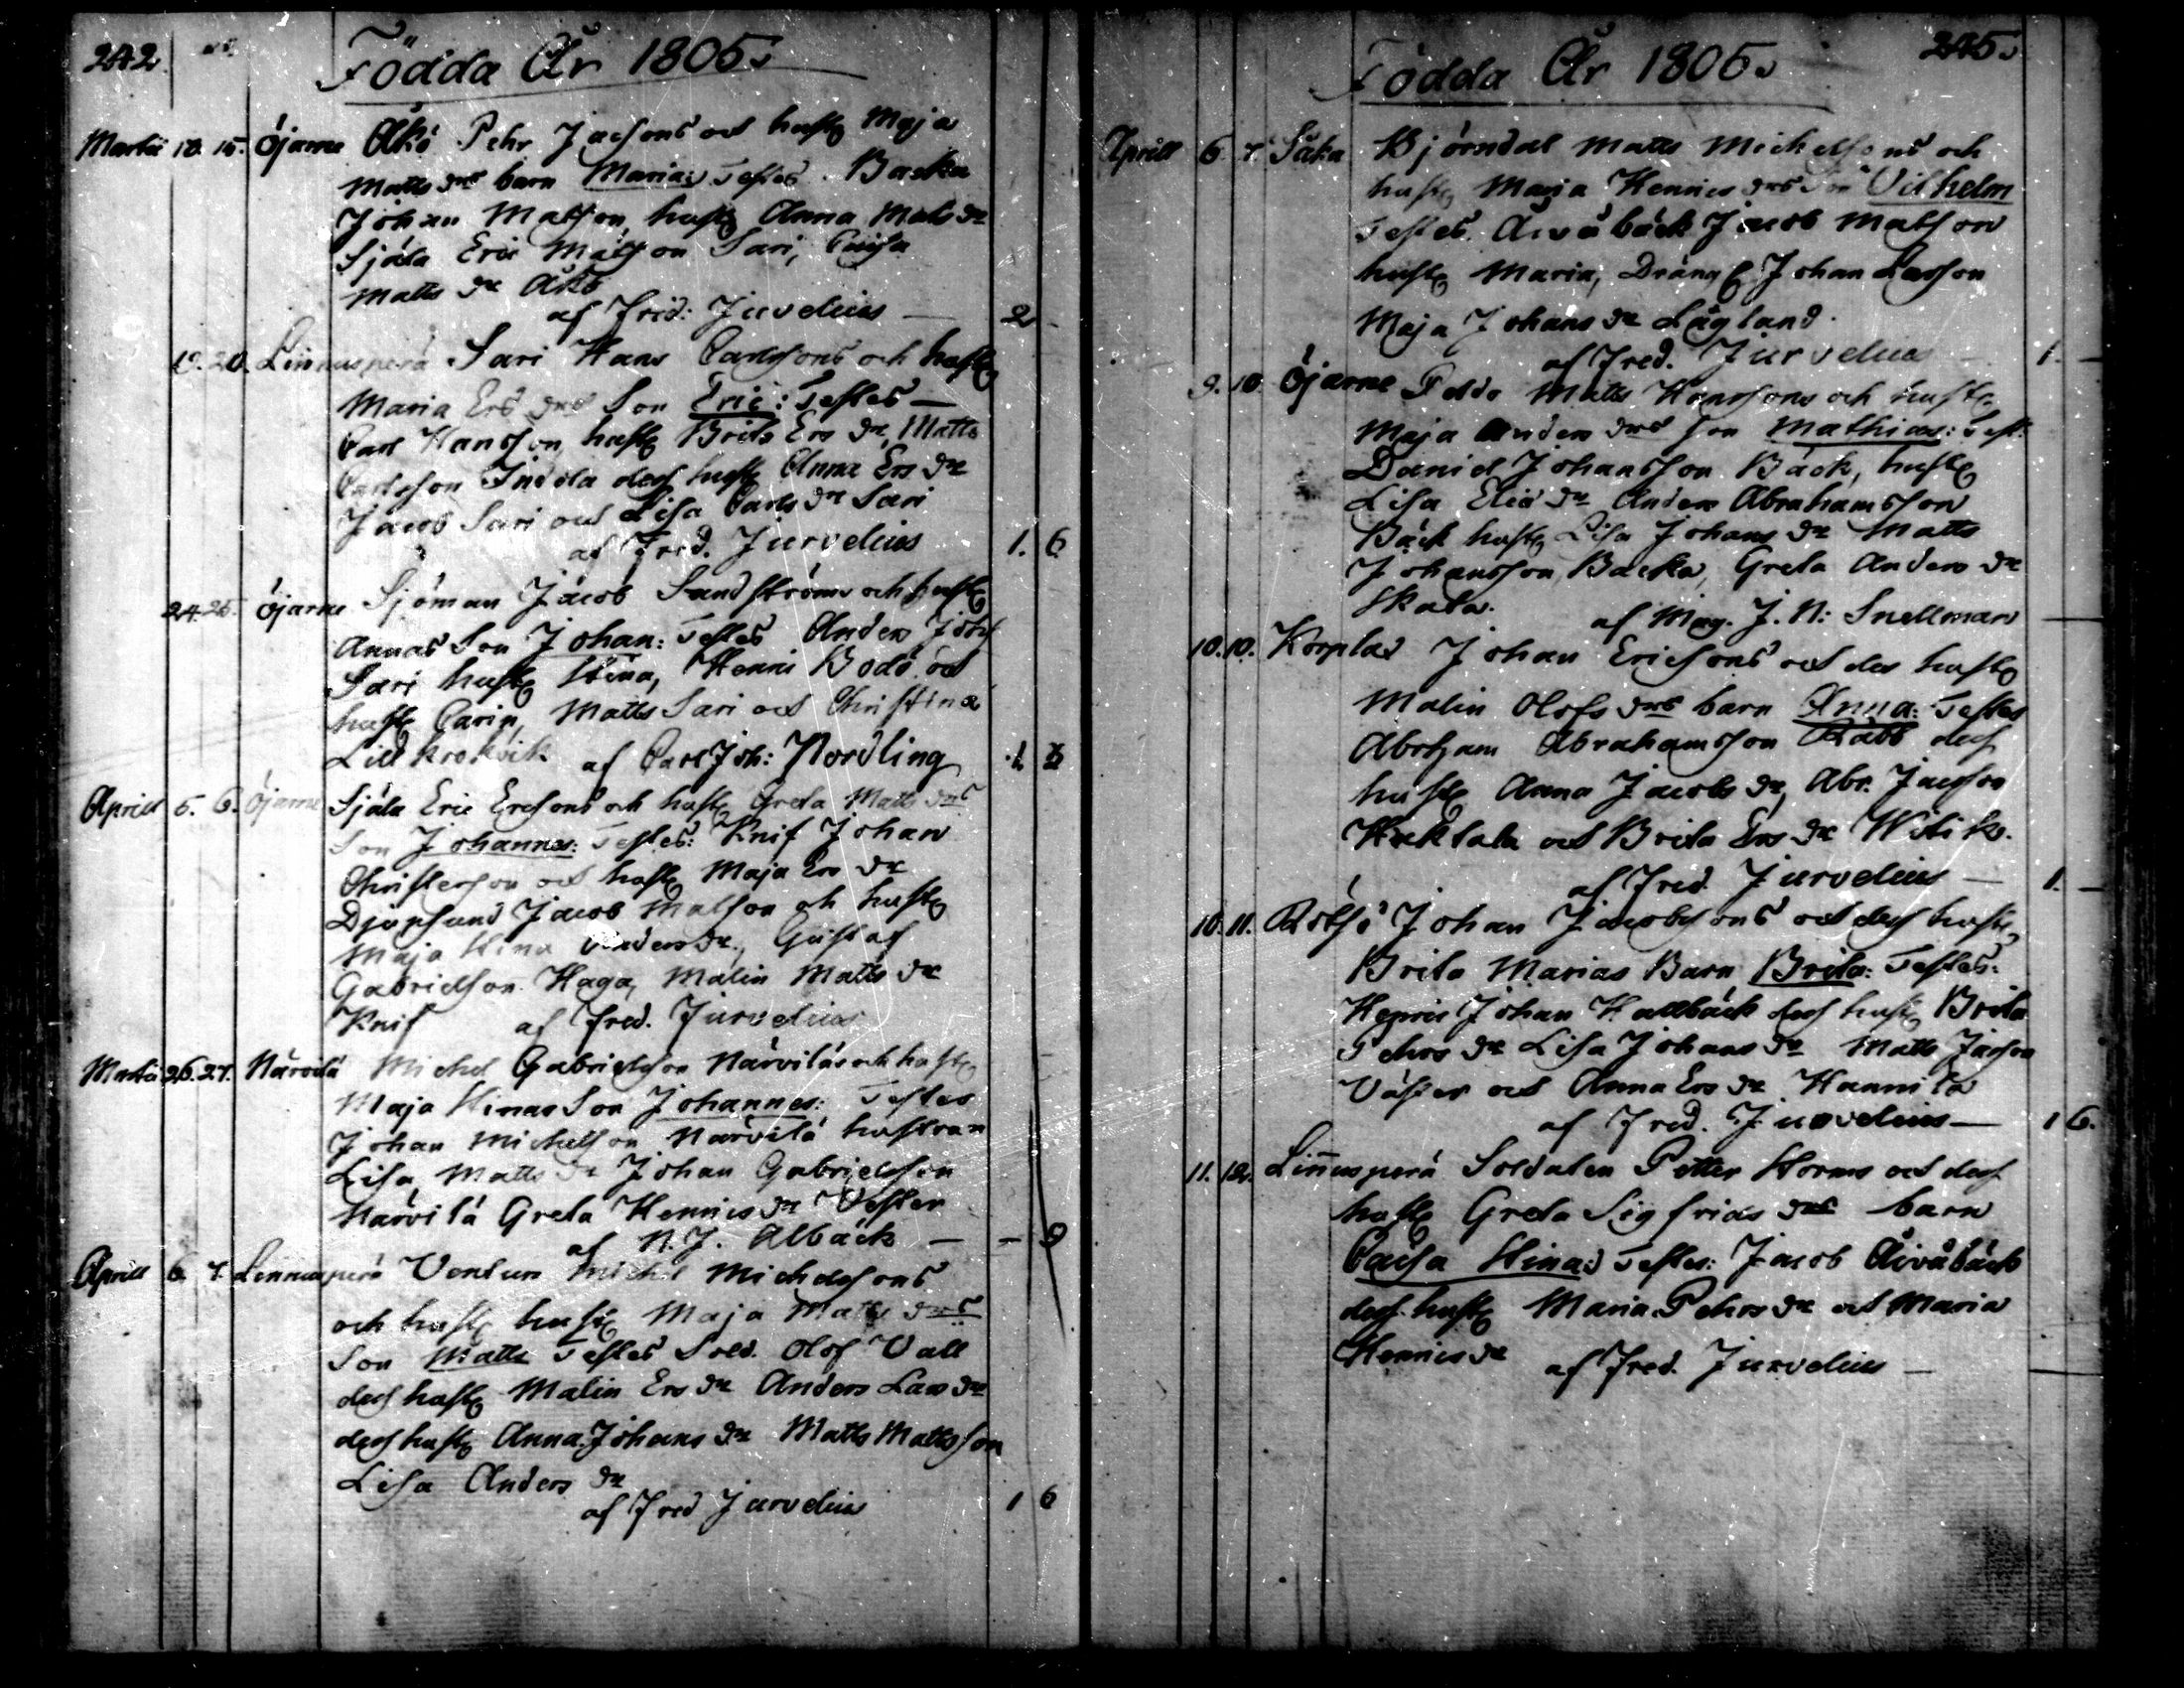 242.
Födda År 1805.
Martii 18. 15. Öjarne Åkö Pehr Jacsons och hustr Maja
Matts drs barn Maria: Testes. Backa
Johan Matson, hustr Anna Mats dr
Sjåla Eric Matson Sari, Caisa
Matts dr Åkö
af Fred: Jurvelius — 2 -
19. 20. Linnusperä Sari Hans Carlssons och hustr
Maria Ers drs Son Eric: Testes —
Carl Hansson, hustr Brita Ers dr, Matts
Carlsson Indola dess hustr Anna Ers dr
Jacob Sari och Lisa Carls dr Sari
af Fred. Jurvelius 1. 6
24. 25. Öjarne Sjöman Jacob Sandströms och hustr
Annas Son Johan: Testes Anders Johs
Sari hustr Stina, Henric Bodö och
hustr Carin, Matts Sari och Christina
Lill Krokvik af Carl Joh: Nordling
Aprill 5. 6. Öjarne Sjåla Eric Ersons och hustr Greta Matts drs
Son Johannes: Testes: Knif Johan
Christerson och hustr Maja Ers dr
Djupsund Jacob Matson och hustr
Maja Stina Anders dr, Gustaf
Gabrielson Haga, Malin Matts dr
Knif af Fred. Jurvelius
Martii 26. 27. Närvilä Michel Gabrielsson Närviläs och hustr
Maja Stinas Son Johannes: Testes
Johan Michelson Närvilä hustrun
Lisa Matts dr Johan Gabrielsson
Närvilä Greta Henrics dr Vester
af N. J. Albäck — — 9
Aprill 6. 7. Linnusperä Ventus Michel Michelsons
och hustr hustr Maja Matts drs
Son Matts Testes Sold. Olof Vall
dess hustr Malin Ers dr Anders Lars dr
dess hustr Anna Johans dr Matts Mattsson
Lisa Anders dr
af Fred Jurvelius 1 6
Födda År 1805. 245.
Aprill 6. 7. Såka Björndal Matts Michelsons och
hustr Maria Henrics drs Son Vilhelm
Testes. Åivåbäck Jacob Matson
hustr Maria, Dräng E Johan Larsson
Maja Johans dr Lågland.
af Fred. Jurvelius — 1. —
9. 10. Öjarne Peldo Matts Hanssons och hustr
Maja Anders drs Son Mathias: Test:
Daniel Johansson Bäck, hustr
Lisa Elia dr Anders Abrahamsson
Bäck hustr Lisa Johans dr Matts
Johansson Backa, Greta Anders dr
Skata. af Mag. J. N: Snellman —
10. 10. Korplax Johan Ericsons och des hustr
Malin Olofs drs barn Anna: Testes
Abraham Abrahamsson Rabb dess
hustr Anna Jacobs dr, Abr. Jacson
Hakkala och Brita Ers dr Witik.
af Fred. Jurvelius — 1. —
10. 11. Rötsö Johan Jacobsons och dess hustr
Brita Marias Barn Brita: Testes:
Henric Johan Hallbäck dess hustr Brita
Pehrs dr Lisa Johans dr Matts Jacson
Väster och Anna Ers dr Hannila
af Fred. Jurvelius — 1 6.
11. 12. Linnusperä Soldaten Petter Storms och dess
hustr Greta Sigfrids drs barn
Caisa Stina: Testes: Jacob Åivåbäck
dess hustr Maria Pehrs dr och Maria
Henrics dr af Fred. Jurvelius —